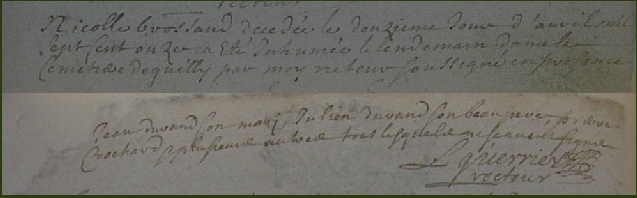 Nicolle brossaud decedée le douzieme Jour d'avril mil
sept cent onze a Eté Inhumée le lendemain dans le
Cemetiere de quilly par moy recteur soussigné en presence
Jean durand son mary, Julien durand son beau pere, pierre
Crochard et plusieurs autres tous lesquels ne scavent signer
Guerrier
recteur